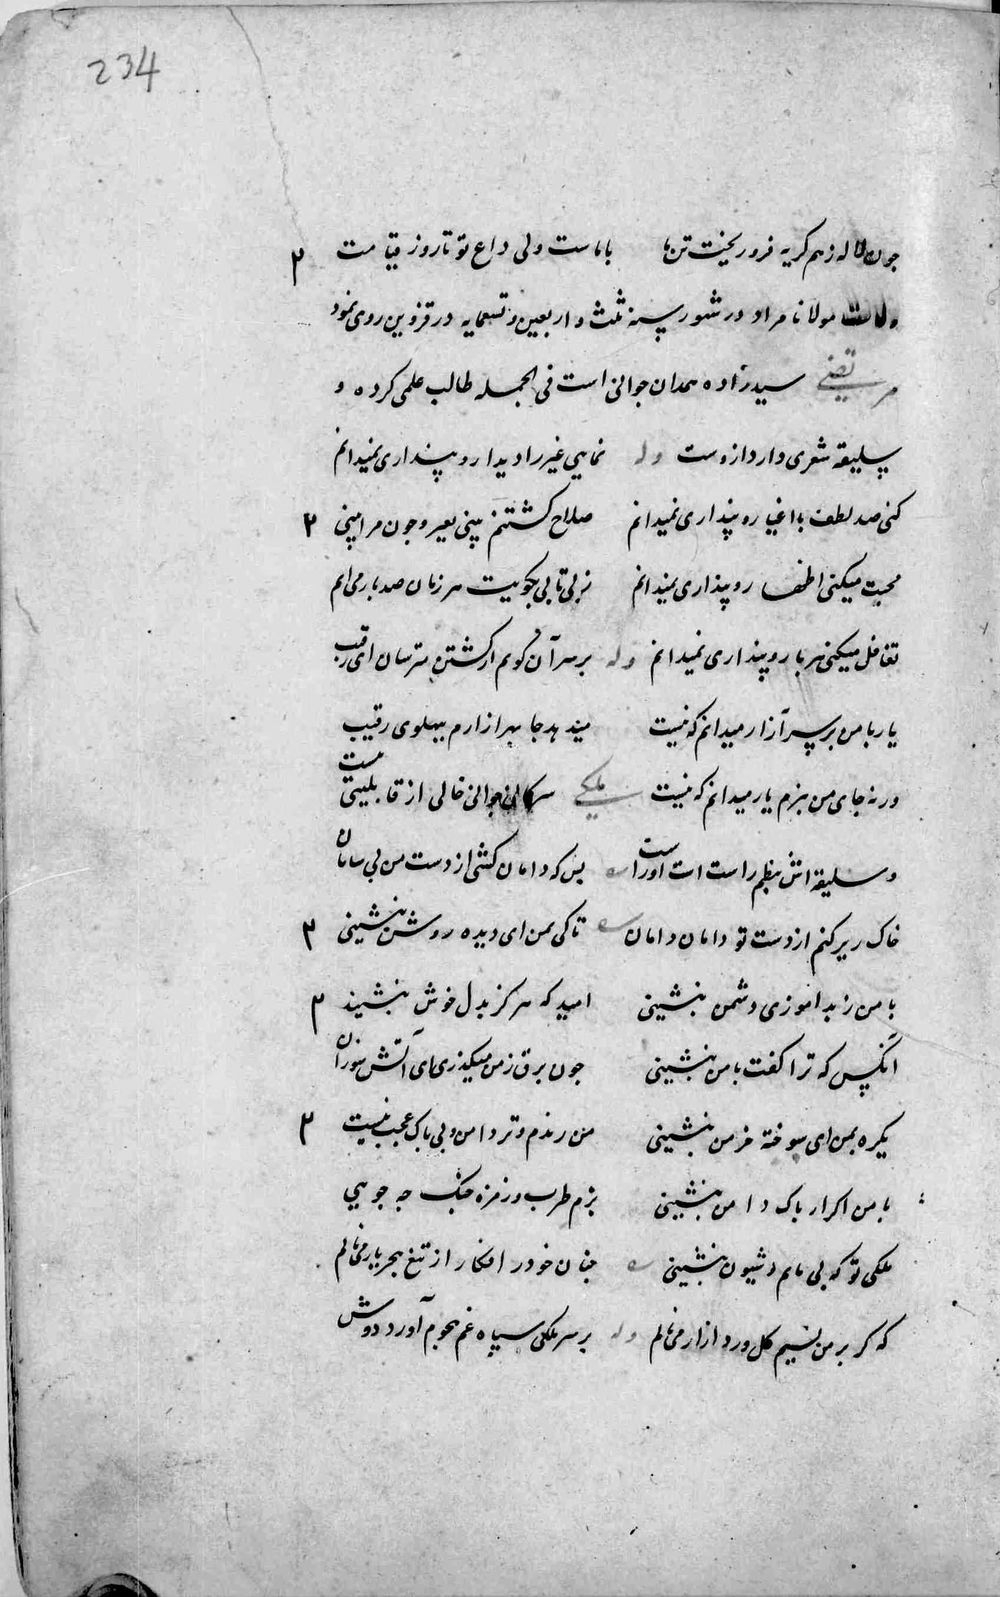 234
چون لاله ز هم گریه فرو ریخت تن ما باماست ولی داغ تو تا روز قیامت ۲
وفات مولانا مراد در شهور سنه ثلث و اربعین و تسعمایه در قزوین روی نمود
مرتضی سیدزاده همدان جوانی است فی الجمله طالب علمی کرده و
سلیقه شعری دارد ازوست وله نمایی غیر را دیدار و پنداری نمیدانم
کنی صد لطف با اغیار و پنداری نمیدانم صلاح کشتنم بینی بغیر و چون مرا بینی ۲
محبت میکنی اظهار و پنداری نمیدانم ز بی تابی بکویت هر زمان صد بار می آیم
تغافل میکنی هر بار و پنداری نمیدانم وله بر سر آن کویم از کشتن مترسان ای رقیب
یار با من بر سر آزار میدانم که نیست میدهد جا بهر آزارم بپهلوی رقیب
ورنه جای من ببزم یار میدانم که نیست ملکی سرکانی جوانی خالی از قابلیتی نیست
و سلیقه اش بنظم راست است اوراست بس که دامان کشی از دست من بی سامان
خاک ریز کنم از دست تو دامان دامان تا کی بمن ای دیده روشن ننشینی ۲
با من ز بد آموزی دشمن ننشینی امید که هرگز بدل خوش ننشیند ۲
آنکس که ترا گفت با من ننشینی چون برق ز من میگذری ای آتش سوزان
یکره بمن ای سوخته خرمن ننشینی من رندم و تردامن و بی باک عجب نیست ۲
با من اگر ای پاک دامن ننشینی بزم طرب و زمزمه چنک چه جویی
ملکی تو که بی ماتم و شیون ننشینی چنان خود را افکار از تیغ هجر یار می نالم
که گر بر من نسیم گل وزد از ار می نالم وله بر سر ملکی سپاه غم هجوم آورد دوش